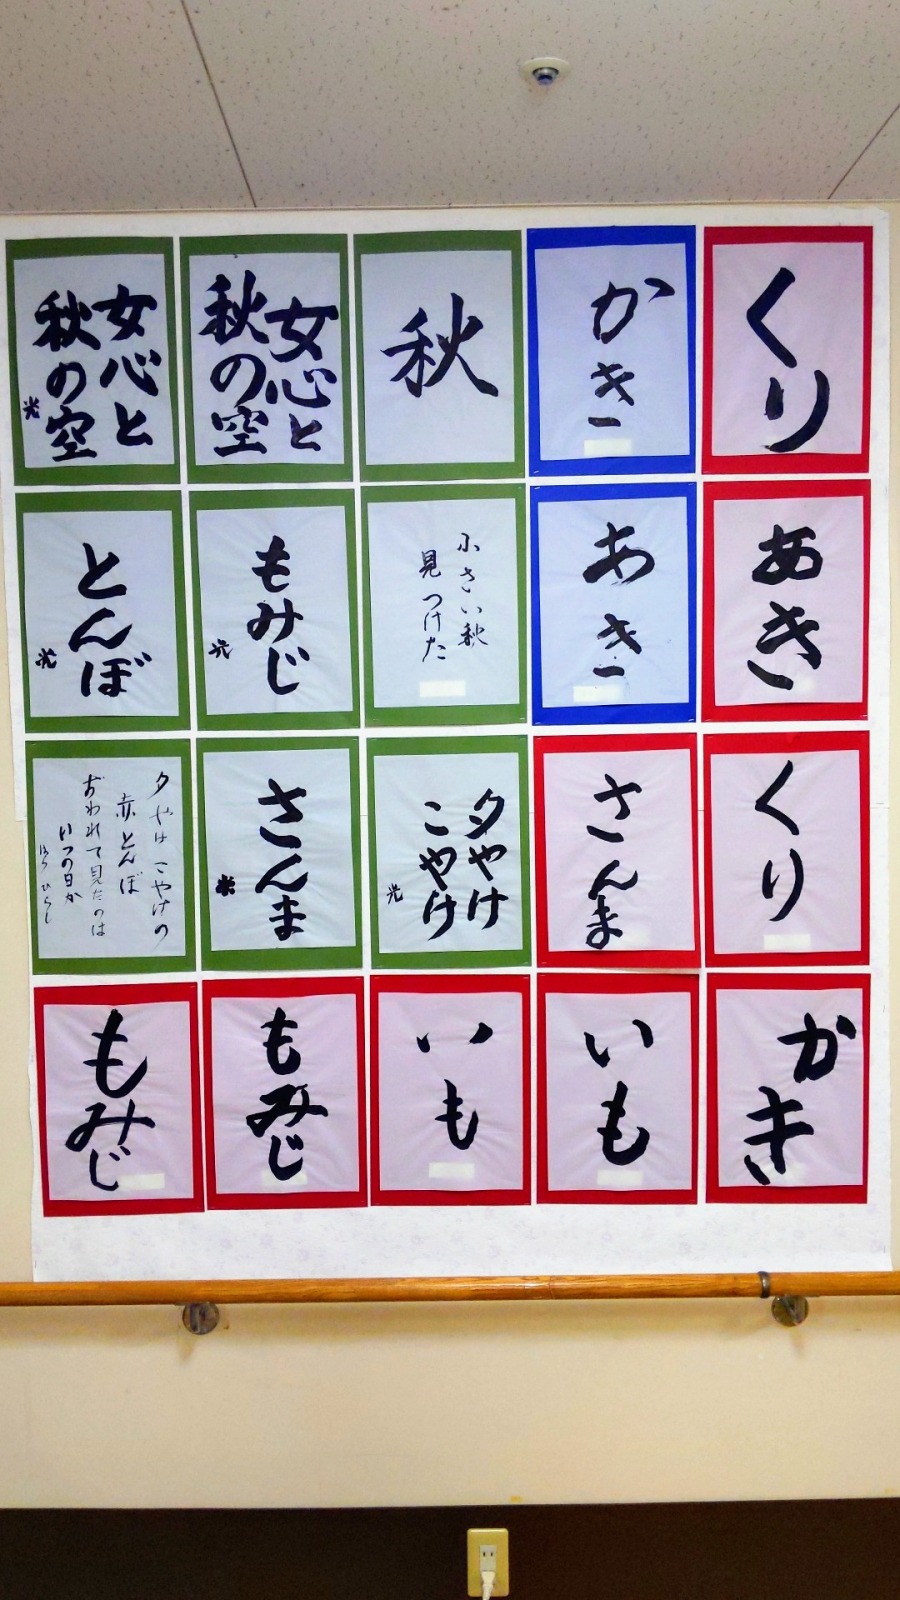 くり
かき
秋
女心と
秋の空
女心と
秋の空
光
あき
あき
小さい秋
見つけた
もみじ
光
とんぼ
光
くり
さんま
夕やけ
こやけ
光
さんま
夕やけ こやけの
赤とんぼ
おわれて見たのは
いつの日か
かき
いも
いも
もみじ
もみじ